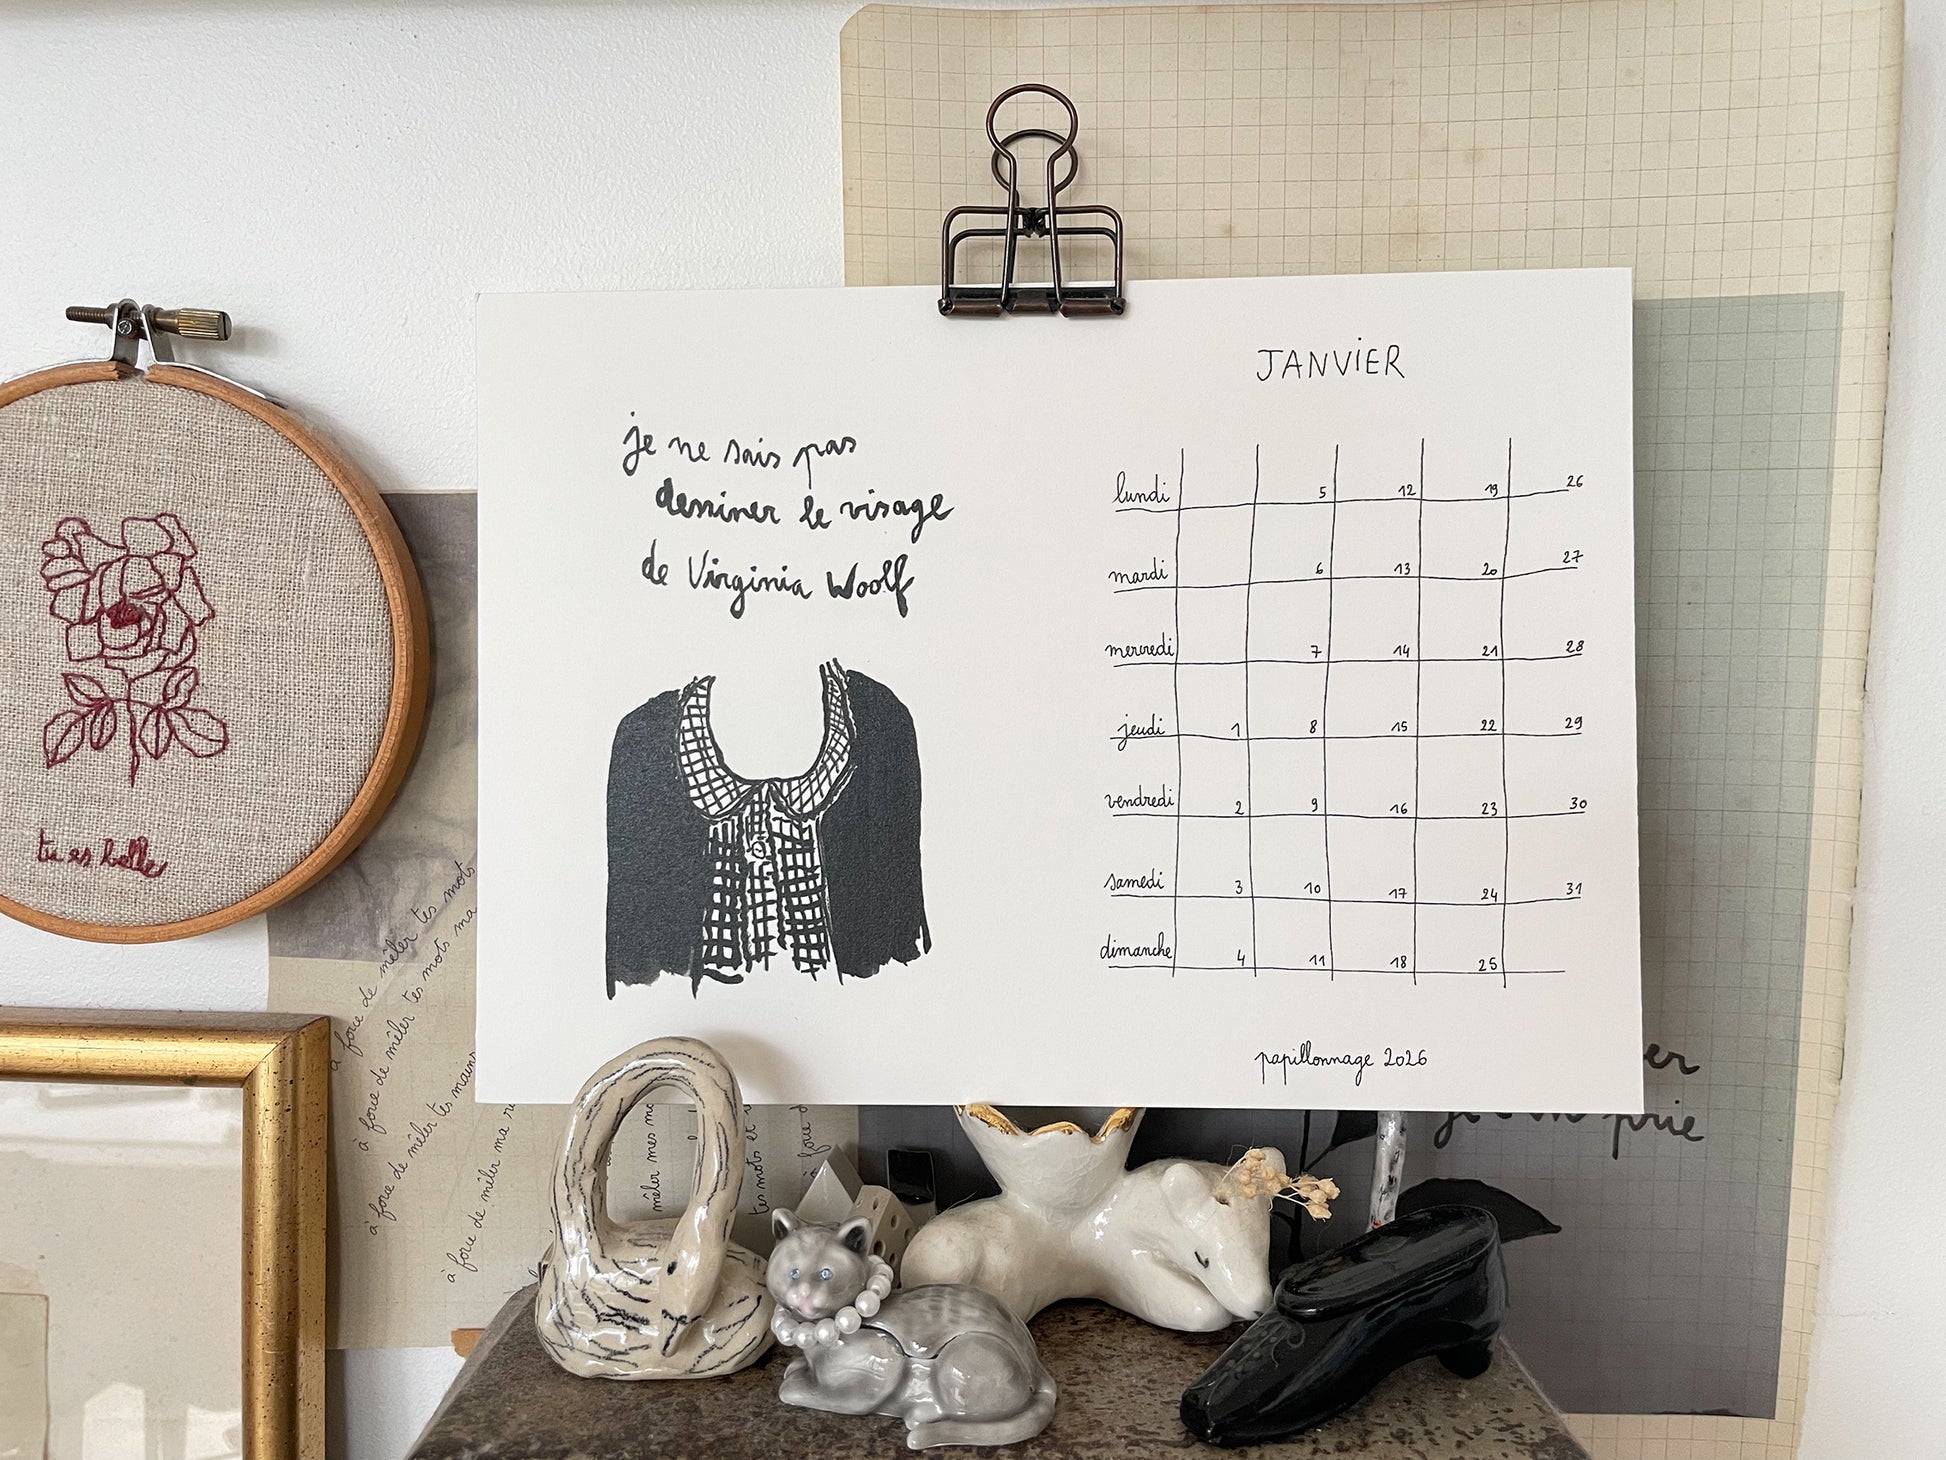 je ne sais pas
dessiner le visage
de Virginia Woolf
JANVIER
lundi 5 12 19 26
mardi 6 13 20 27
mercredi 7 14 21 28
jeudi 1 8 15 22 29
vendredi 2 9 16 23 30
samedi 3 10 17 24 31
dimanche 4 11 18 25
papillonnage 2026
tu es belle
à force de mêler tes mots
à force de mêler tes mots ma
à force de mêler tes mains
à force de mêler ma
mêler mes
tes mots et
à force
er
prie